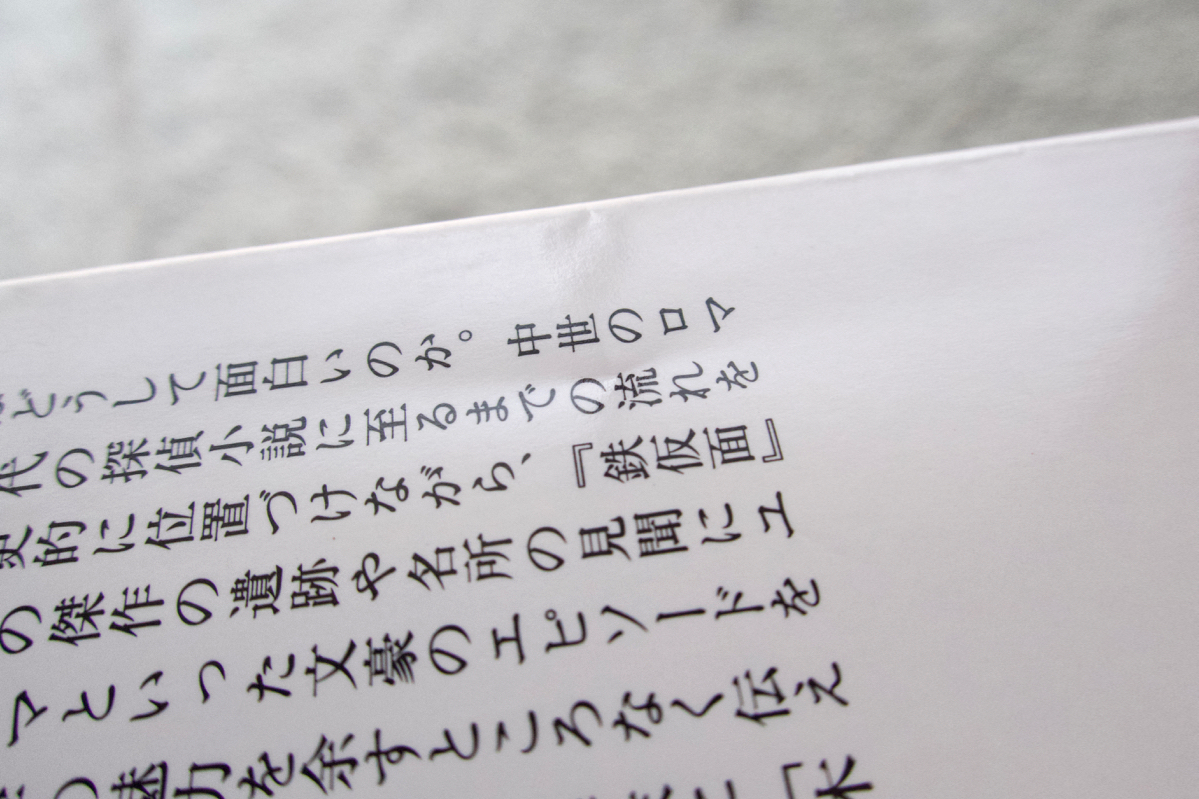 どうして面白いのか。中世のロマ
代の探偵小説に至るまでの流れを
史的に位置づけながら、『鉄仮面』
の傑作の遺跡や名所の見聞にユ
マといった文豪のエピソードを
魅力を余すところなく伝え
「木